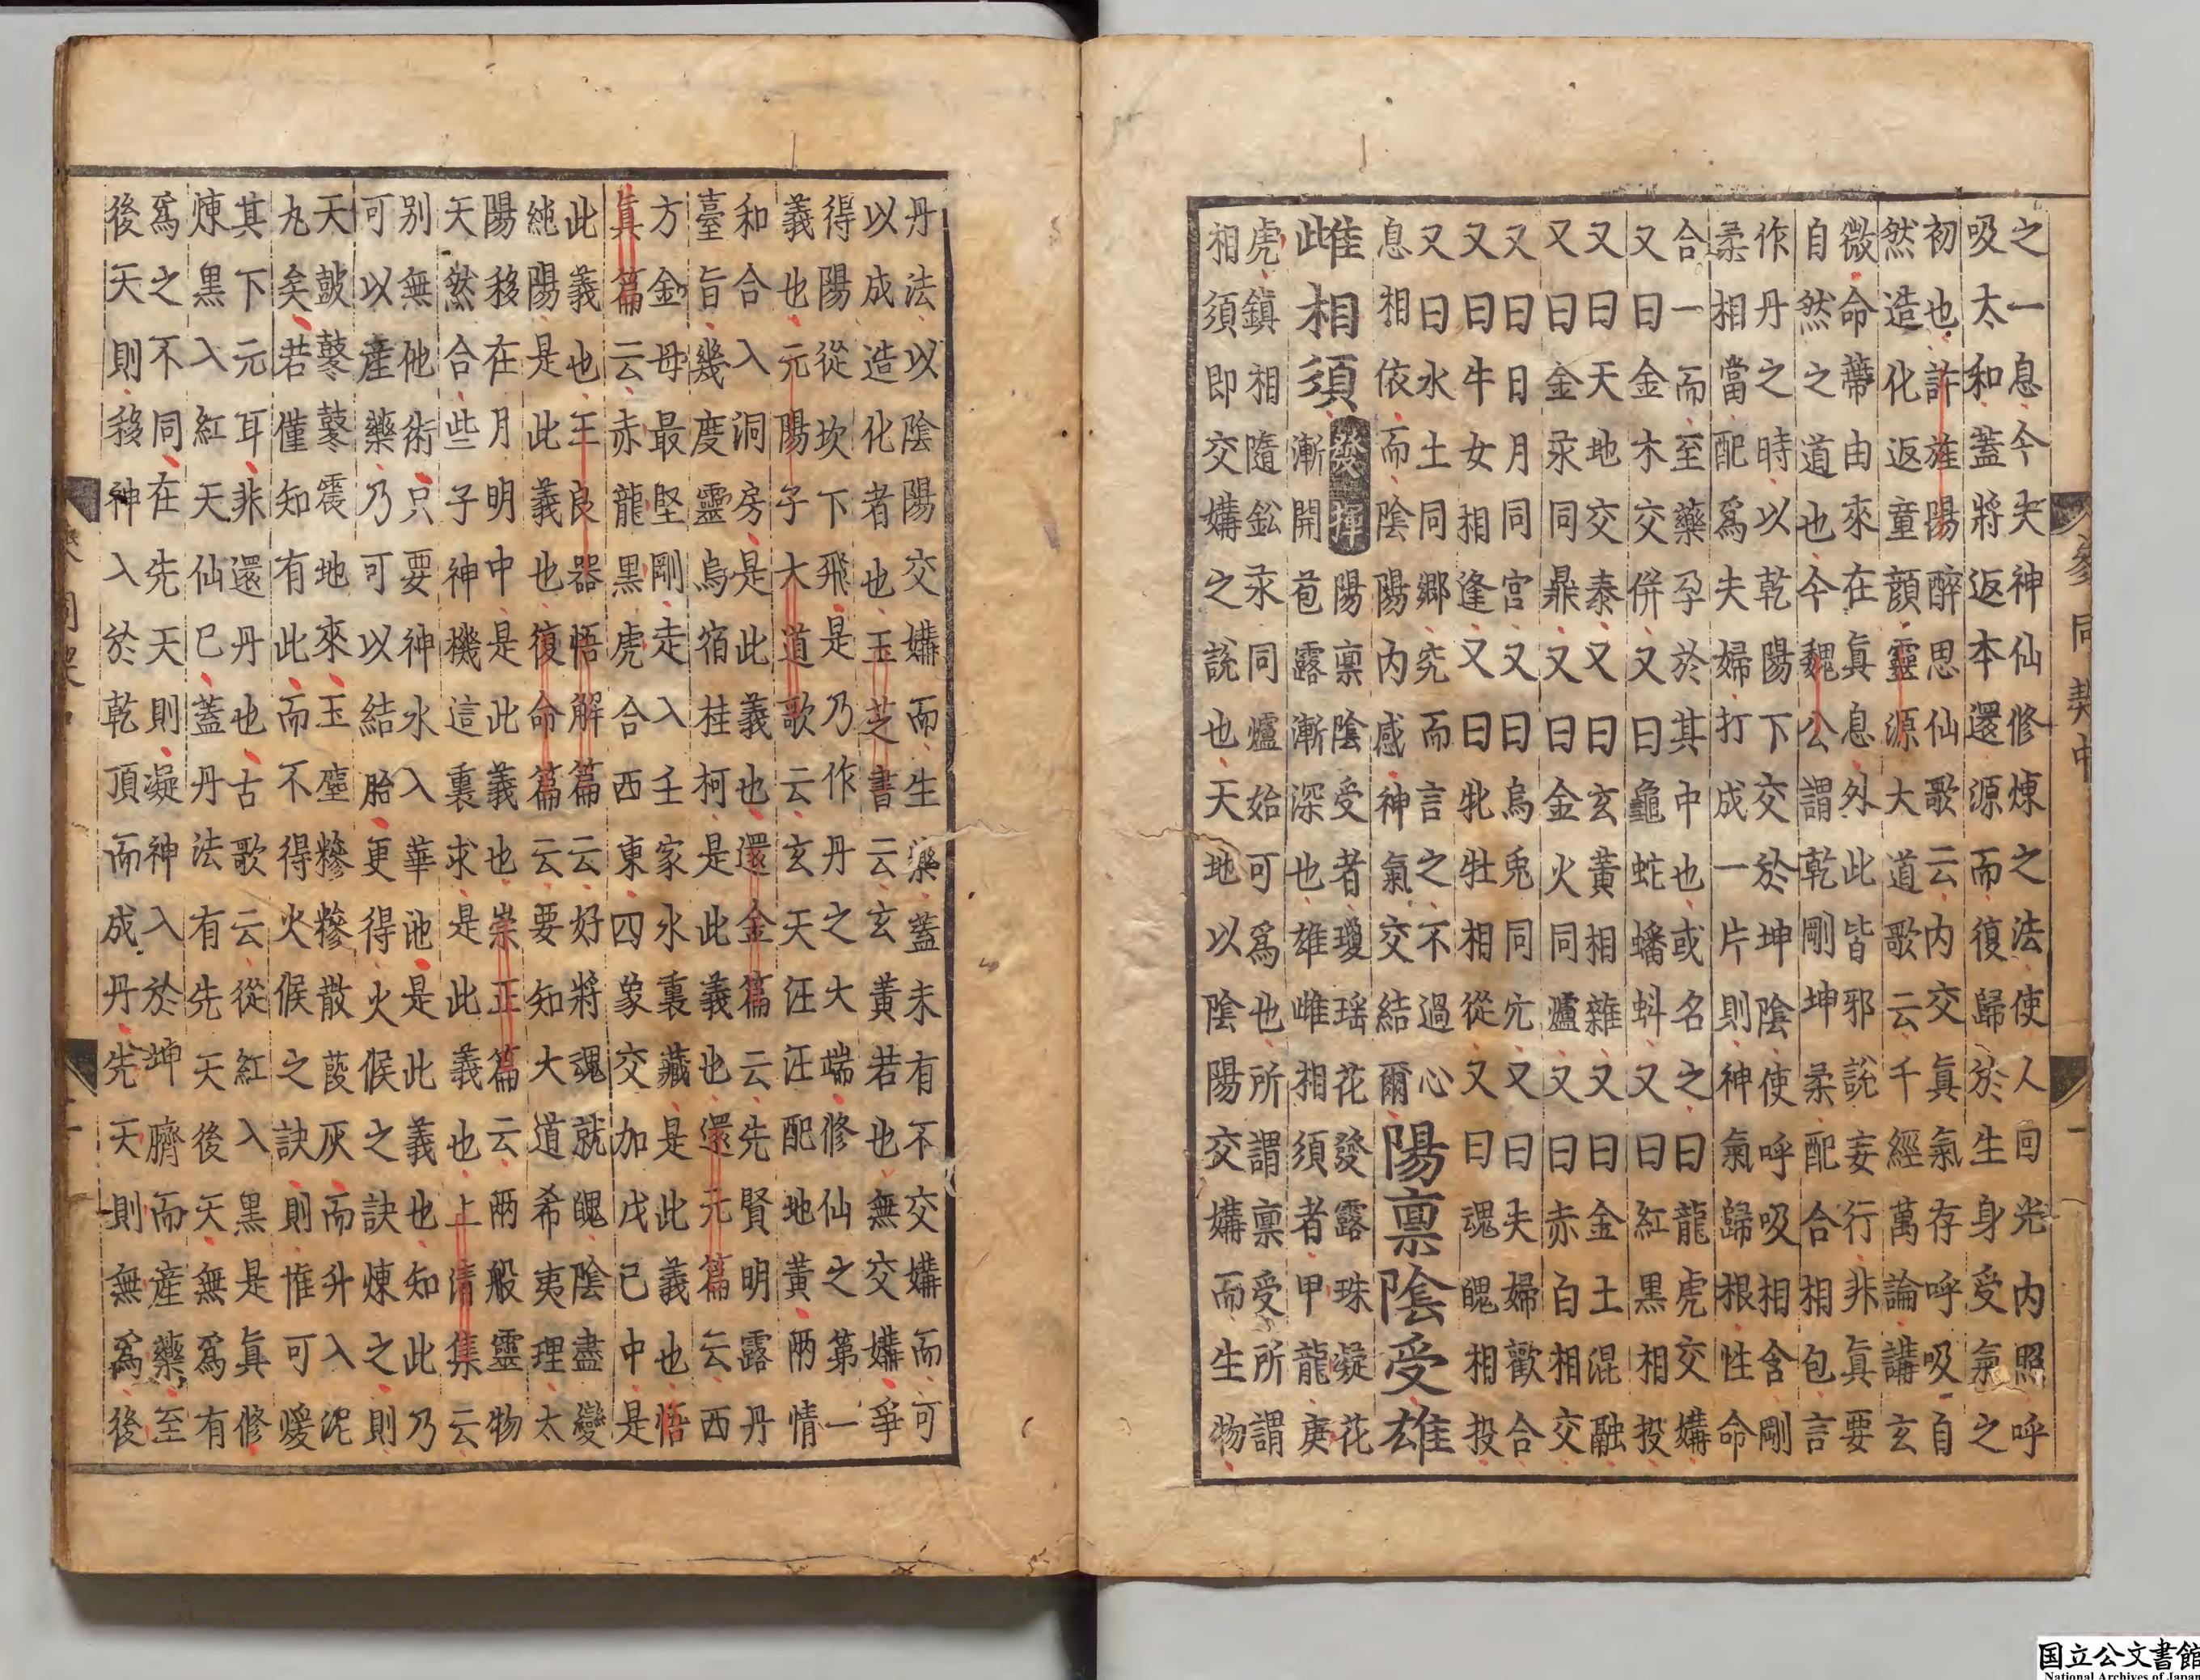 之一息今夫神仙修煉之法使人回光內照呼
吸太和蓋將返本還源而復歸於生身受氣之
初也許旌陽醉思仙歌云內交真氣存呼吸自
然造化返童顏靈源大道歌云千經萬論講玄
微命蔕由來在真息外此皆邪說妄行非真要
自然之道也今魏公謂乾剛坤柔配合相包言
作丹之時以乾陽下交於坤陰使呼吸相含剛
柔相當配爲夫婦打成一片則神氣歸根性命
合一而至藥孕於其中也或名之曰龍虎交媾
又曰金木交併又曰龜蛇蟠蚪又曰紅黑相投
又曰天地交泰又曰玄黃相雜又曰金土混融
又曰金汞同鼎又曰金火同爐又曰赤白相交
又曰日月同宮又曰烏兎同穴又曰夫婦歡合
又曰牛女相逢又曰牝牡相從又曰魂魄相投
又曰水土同鄉究而言之不過心
息相依而陰陽內感神氣交結爾
陽禀陰受雄
雌相須
發揮
陽禀陰受者瓊瑶花發露珠凝花
漸開苞露漸深也雄雌相須者甲龍庚
虎鎮相隨鈆汞同爐始可爲也所謂禀受所謂
相須即交媾之說也天地以陰陽交媾而生物
參同契中
丹法以陰陽交媾而生藥蓋未有不交媾而可
以成造化者也玉芝書云玄黃若也無交媾爭
得陽從坎下飛是乃作丹之大端修仙之第一
義也元陽子大道歌云玄天汪汪配地黃兩情
和合入洞房是此義也還金篇云先賢明露丹
臺旨幾度靈烏宿桂柯是此義也還元篇云西
方金母最堅剛走入壬家水裏藏是此義也悟
真篇云赤龍黑虎合西東四象交加戊己中是
此義也王良器悟解篇云好將魂就魄陰盡變
純陽是此義也復命篇云要知大道希夷理太
陽移在月明中是此義也崇正篇云兩般靈物
天然合些子神機這裏求是此義也上清集云
別無他術只要神水入華池是此義也知此乃
可以產藥乃可以結胎更得火候之訣煉之則
天皷鼕鼕震地來玉塵糝糝散葭灰而升入泥
丸矣若僅知有此而不得火候之訣則惟可煖
其下元耳非還丹也古歌云從紅入黑是真修
煉黑入紅天仙已蓋丹法有先天後天無爲有
爲之不同在先天則凝神入於坤臍而產藥至
後天則移神入於乾頂而成丹先天則無爲後
国立公文書館
National Archives of Japan